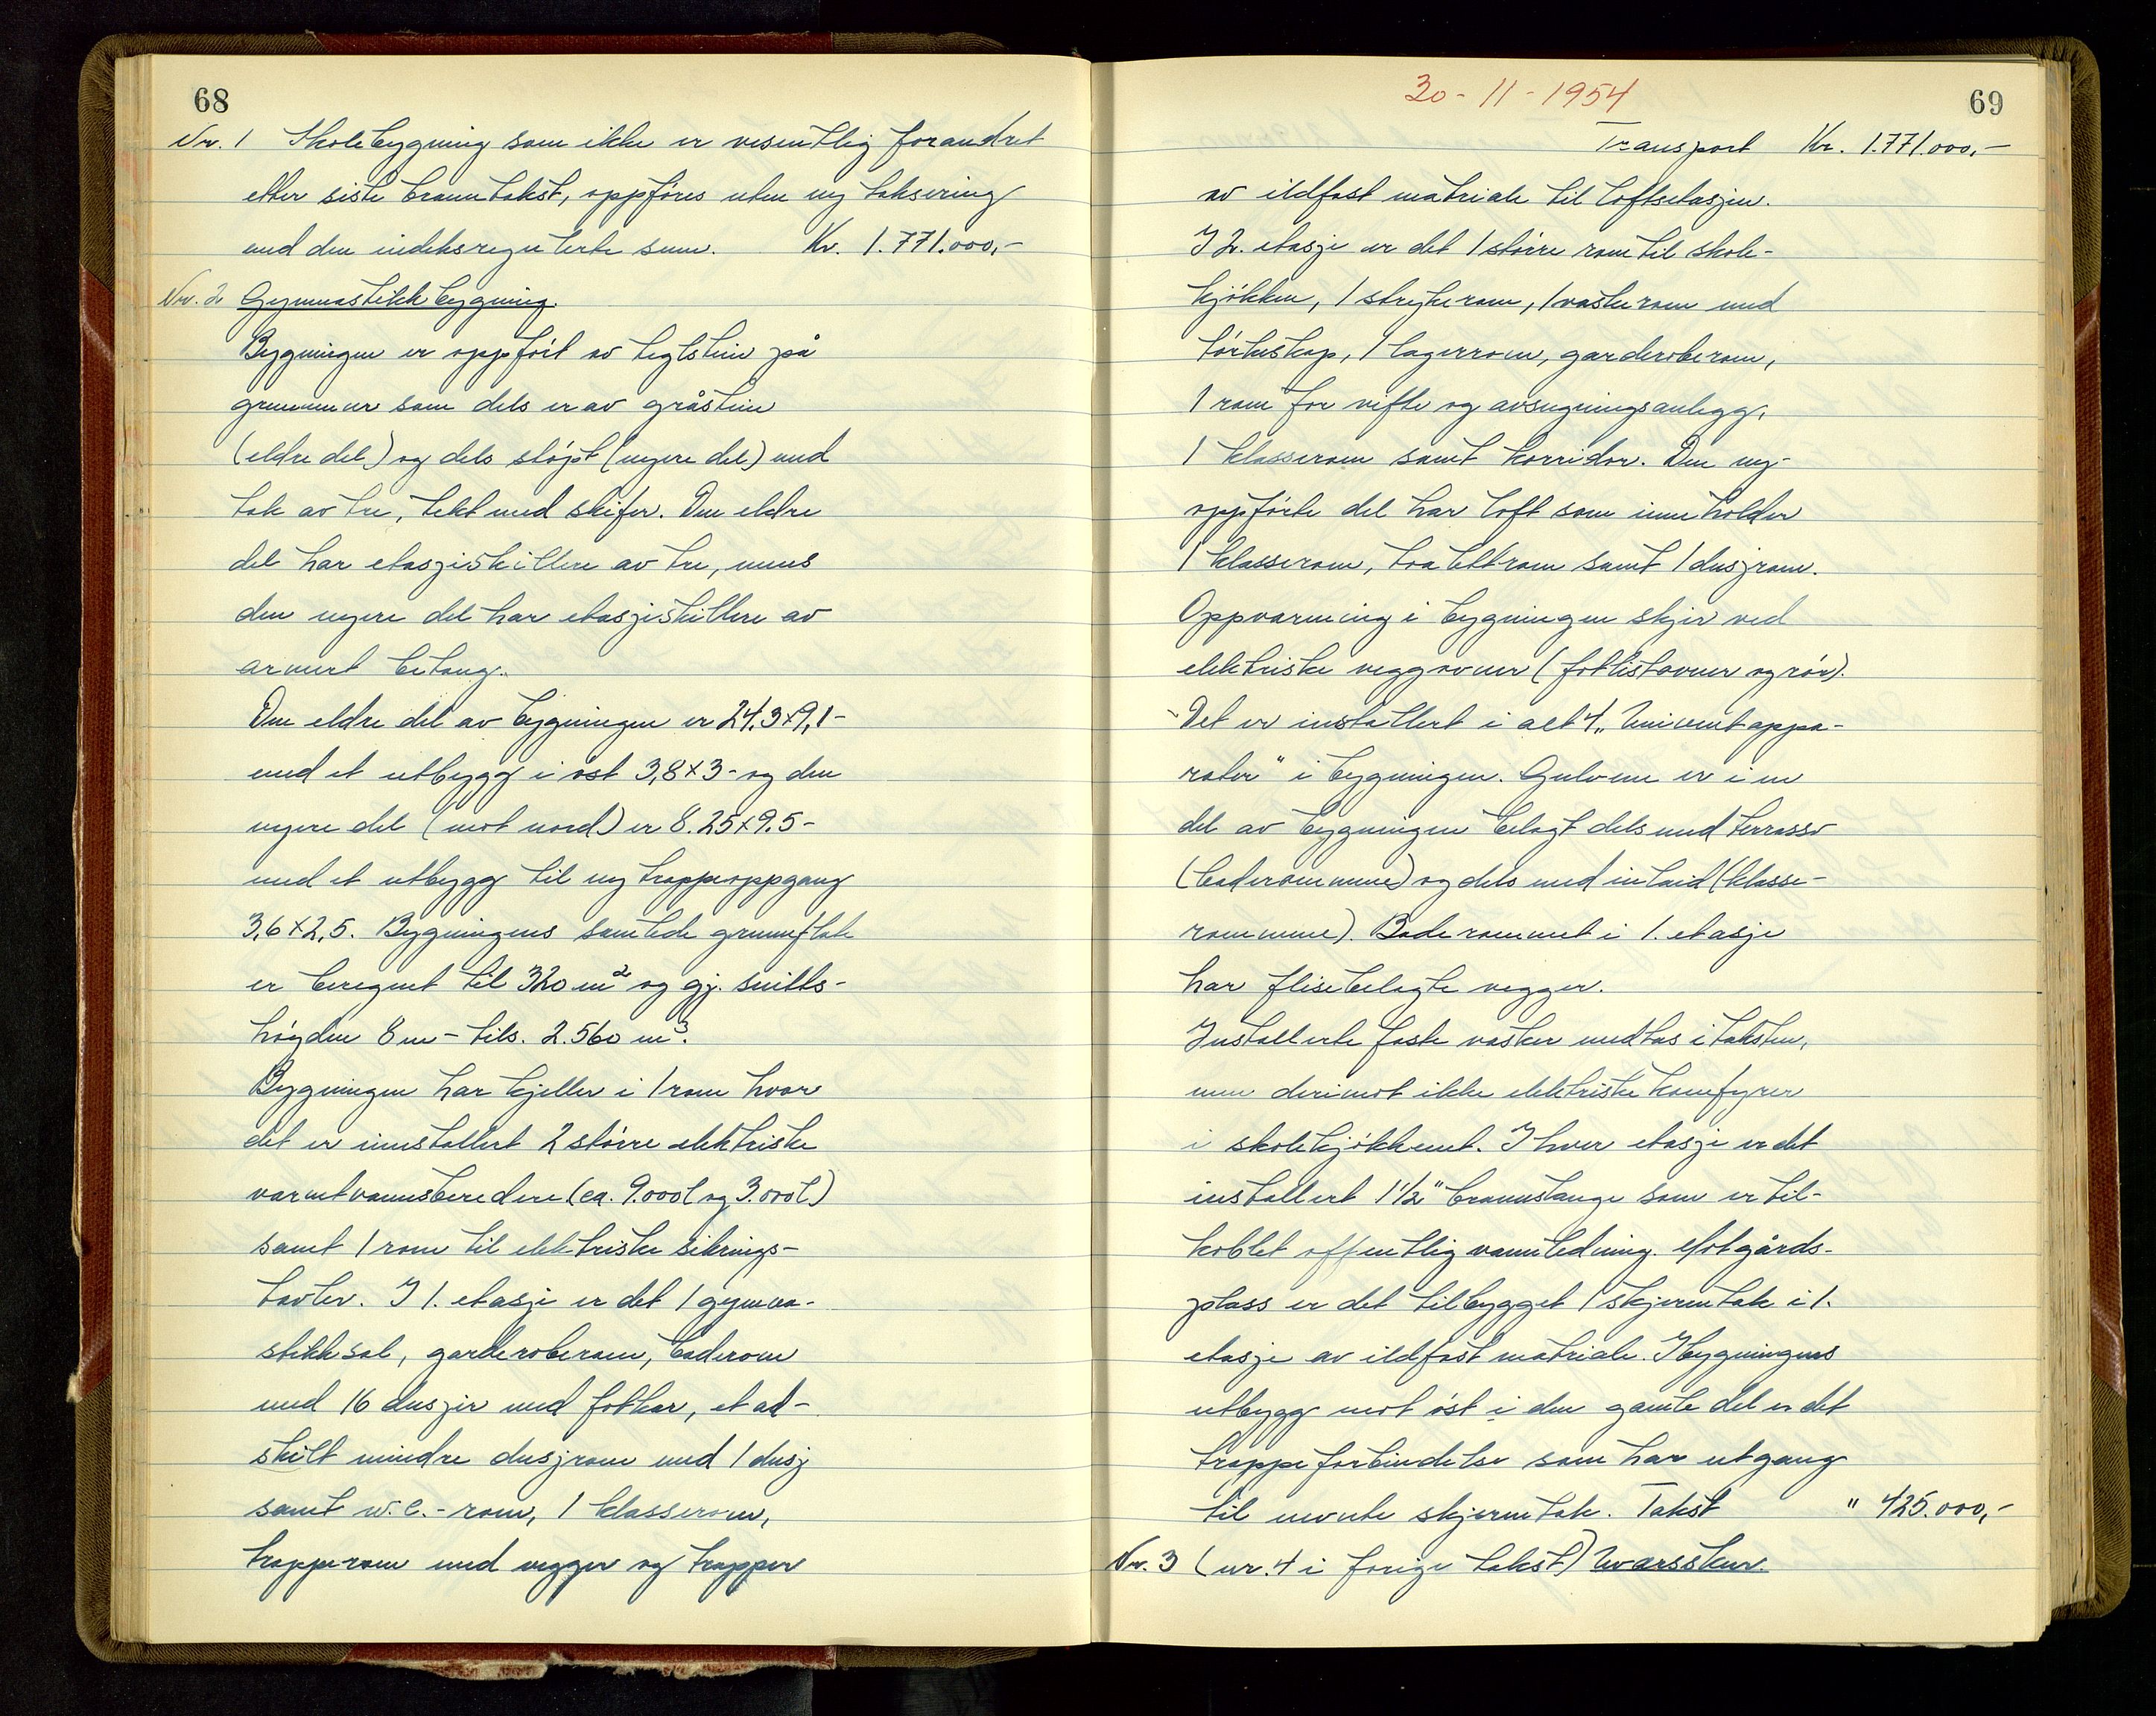 68
Nr. 1 Skolebygning som ikke er vesentlig forandret
etter siste branntakst, oppføres uten ny taksering
med den indeksregulerte sum. Kr. 1.771.000,-
Nr. 2 Gymnastikkbygning.
Bygningen er oppført av teglstein på
grunnmur som dels er av gråstein
(eldre del) og dels støpt (nyere del) med
tak av tre, tekt med skifer. Den eldre
del har etasjeskillere av tre, mens
den nyere del har etasjeskillere av
armert betong.
Den eldre del av bygningen er 24,3x9,1-
med et utbygg i øst 3,8x3- og den
nyere del (mot nord) er 8.25x9.5-
med et utbygg til ny trappeoppgang
3,6x2,5. Bygningens samlede grunnflate
er beregnet til 320 m² og gj. snitts-
høyden 8 m - tils. 2.560 m³.
Bygningen har kjeller i 1 rom hvor
det er innstallert 2 større elektriske
varmtvannsberedere (ca. 9.000l og 3.000l)
samt 1 rom til elektriske sikrings-
tavler. I 1. etasje er det 1 gymna-
stikksal, garderoberom, baderom
med 16 dusjer med fotkar, et ad-
skilt mindre dusjrom med 1 dusj
samt w.c.-rom, 1 klasserom,
trapperom med vegger og trapper
30-11-1954
69
Transport Kr. 1.771.000,-
av ildfast matriale til loftsetasjen.
I 2. etasje er det 1 større rom til skole-
kjøkken, 1 strykerom, 1 vaskerom med
tørkeskap, 1 lagerrom, garderoberom,
1 rom for vifte og avsugningsanlegg,
1 klasserom samt korridor. Den ny-
oppførte del har loft som inneholder
1 klasserom, toalettrom samt 1 dusjrom.
Oppvarming i bygningen skjer ved
elektriske veggovner (fotlistovner og rør).
Det er installert i alt 4 „Univentappa-
rater" i bygningen. Gulvene er i en
del av bygningen belagt dels med terrasso
(baderommene) og dels med inlaid (klasse-
rommene). Baderommet i 1. etasje
har flisebelagte vegger.
Installerte faste vasker medtas i taksten,
men derimot ikke elektriske komfyrer
i skolekjøkkenet. I hver etasje er det
installert 1½" brannslange som er til-
koblet offentlig vannledning. Mot gårds-
plass er det tilbygget 1 skjermtak i 1.
etasje av ildfast matriale. I bygningens
utbygg mot øst i den gamle del er det
trappeforbindelse som har utgang
til nevnte skjermtak. Takst " 425.000,-
Nr. 3 (nr. 4 i forige takst) Uværsskur.